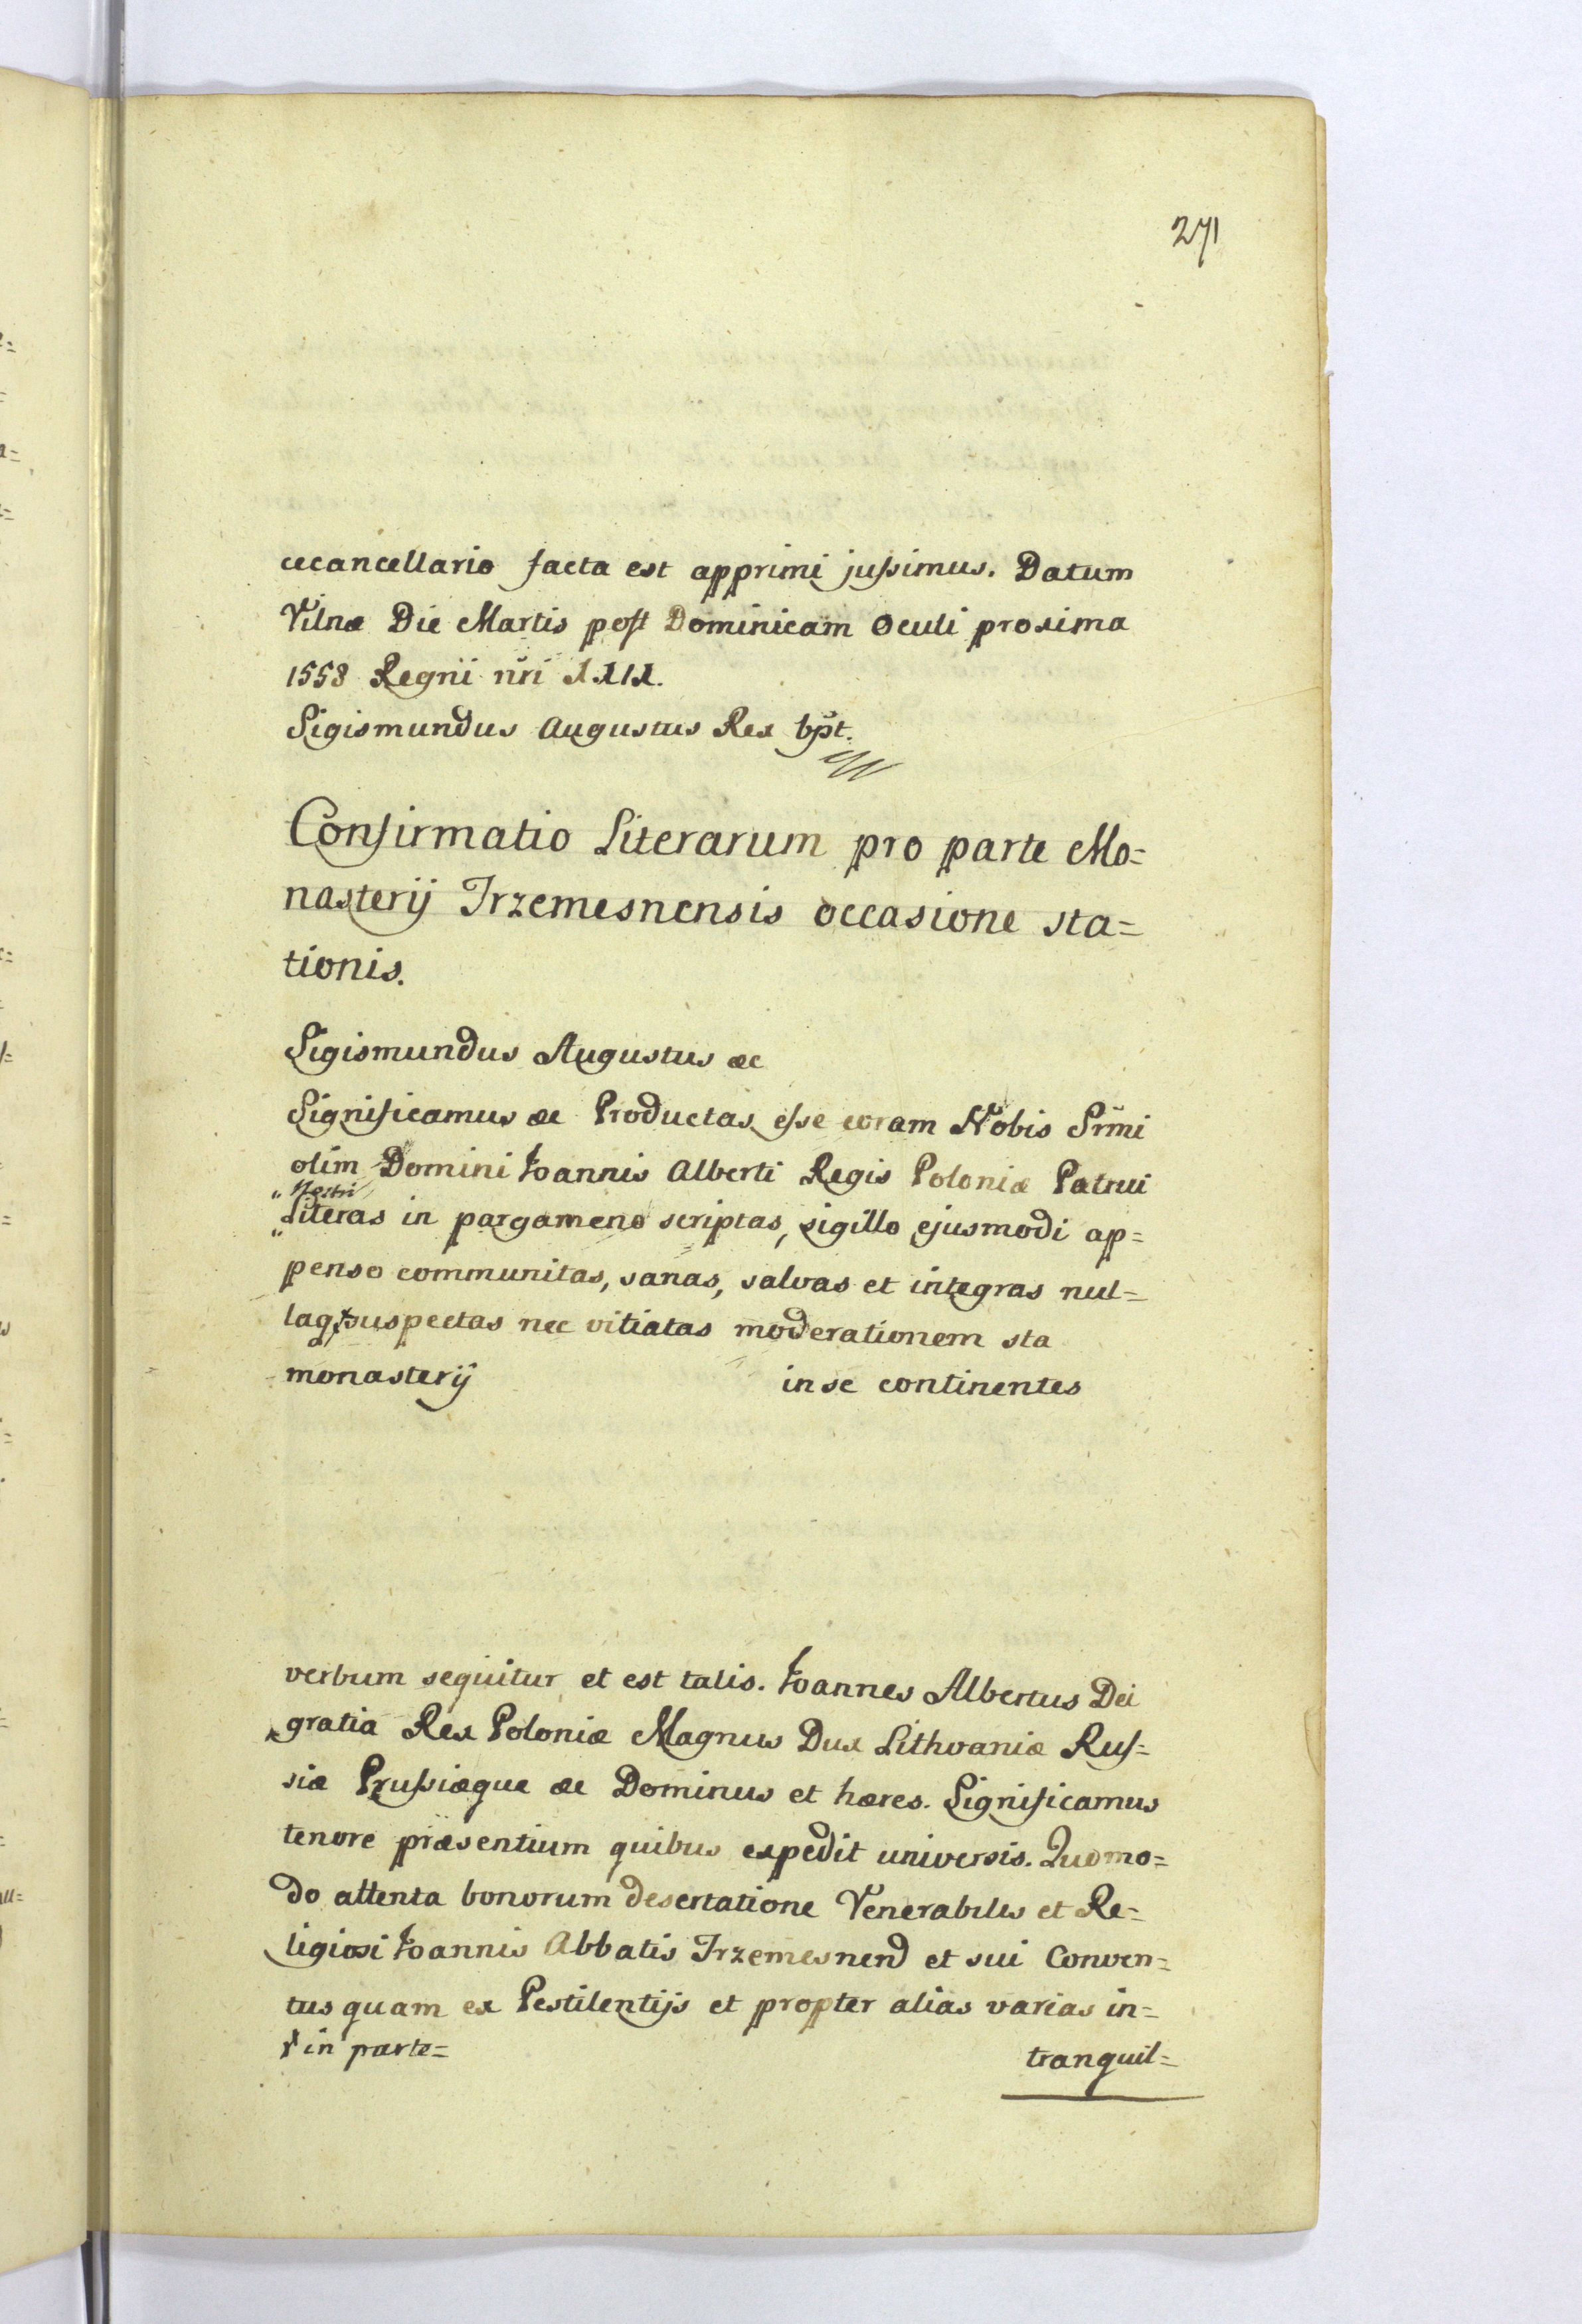 271
cecancellario facta est apprimi jussimus. Datum
Vilnæ Die Martis post Dominicam Oculi proxima
1558 Regni nri XXIX.
Sigismundus Augustus Rex spt.
Confirmatio Literarum pro parte Mo=
nasterij Trzemesnensis occasione sta=
tionis.
Sigismundus Augustus &c
Significamus &c Productas esse coram Nobis Srmi
olim Domini Joannis Alberti Regis Poloniæ Patrui
„ Nostri
„ Literas in pargameno scriptas, sigillo ejusmodi ap=
penso communitas, sanas, salvas et integras nul=
laqx suspectas nec vitiatas moderationem sta
monasterij in se continentes
verbum sequitur et est talis. Joannes Albertus Dei
gratia Rex Poloniæ Magnus Dux Lithvaniæ Rus=
siæ Prussiæque &c Dominus et hæres. Significamus
tenore præsentium quibus expedit universis. Quomo=
do attenta bonorum desertatione Venerabilis et Re=
ligiosi Joannis Abbatis Trzemesnen et sui Conven=
tus quam ex Pestilentijs et propter alias varias in=
x in parte=
tranquil=